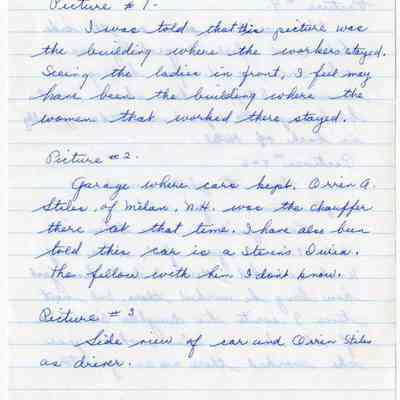 Picture # 1.
I was told that this picture was
the building where the workers stayed.
Seeing the ladies in front, I feel may
have been the building where the
women that worked there stayed.
Picture #2.
Garage where cars kept. Orrin A.
Stiles, of Milan, N.H. was the chauffer
there at that time. I have also been
told this car is a Stevens
the fellow with him I dont know.
Picture # 3
Side view of car and Orrin Stiles
as driver.